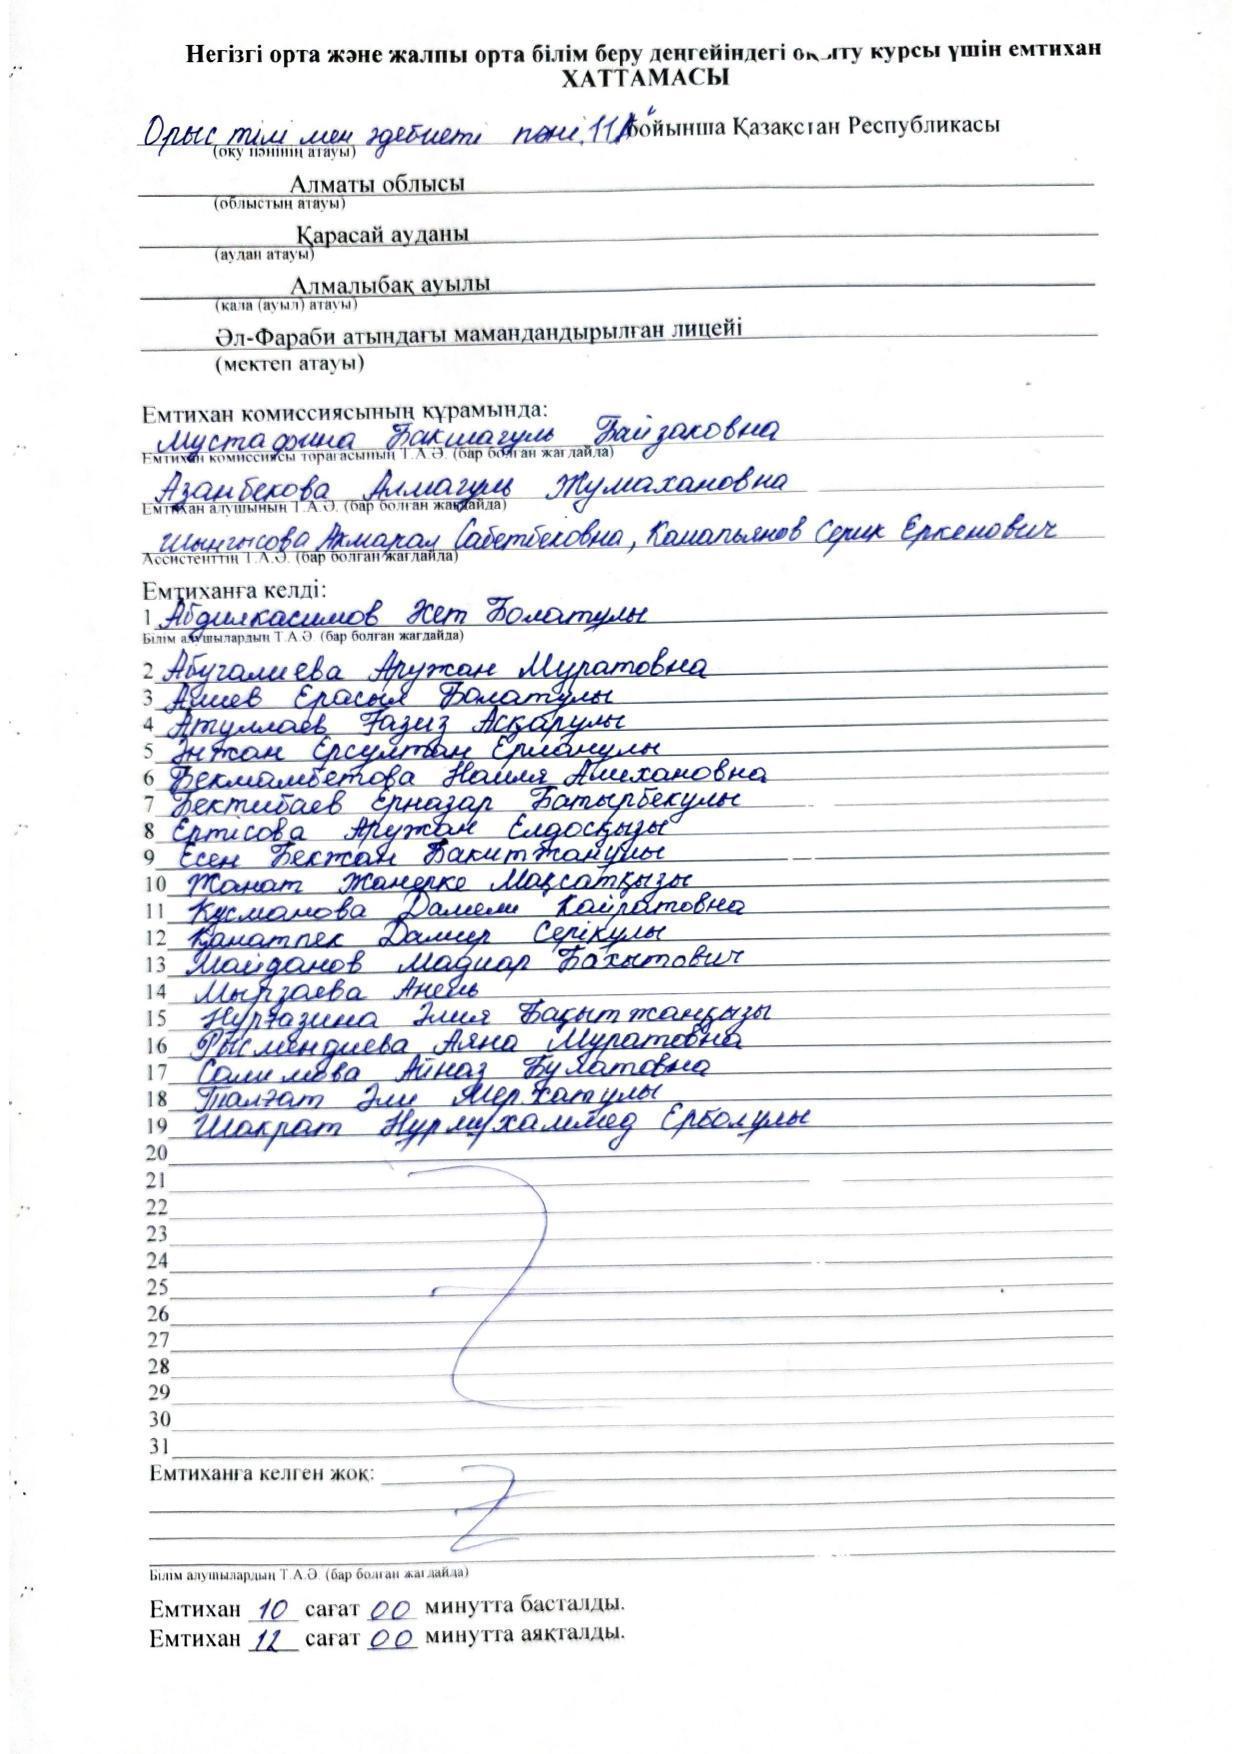 Негізгі орта және жалпы орта білім беру деңгейіндегі оқыту курсы үшін емтихан
ХАТТАМАСЫ
Орыс тілі мен әдебиеті пәні, 11 "А" бойынша Қазақстан Республикасы
(оқу пәнінің атауы)
Алматы облысы
(облыстың атауы)
Қарасай ауданы
(аудан атауы)
Алмалыбақ ауылы
(қала (ауыл) атауы)
Әл-Фараби атындағы мамандандырылған лицейі
(мектеп атауы)
Емтихан комиссиясының құрамында:
Мустафина Бакшагуль Байзаковна
Емтихан комиссиясы төрағасының Т.А.Ә. (бар болған жағдайда)
Азанбекова Алмагуль Жумахановна
Емтихан алушының Т.А.Ә. (бар болған жағдайда)
Шынгысова Акмарал Сабетбековна, Канапьянов Серик Еркенович
Ассистенттің Т.А.Ә. (бар болған жағдайда)
Емтиханға келді:
1 Абдилкасимов Хет Болатулы
Білім алушылардың Т.А.Ә. (бар болған жағдайда)
2 Абугалиева Аружан Муратовна
3 Ашев Ерасыл Болатулы
4 Атуллаев Ғазиз Асқарулы
5 Әнжан Ерсултан Ерланулы
6 Бекмамбетова Наиля Ашхановна
7 Бектибаев Ерназар Батырбекулы
8 Ертісова Аружан Елдосқызы
9 Есен Бекжан Бакитжанулы
10 Жанат Жанерке Мақсатқызы
11 Кусманова Дамели Кайратовна
12 Қанатпек Дамир Серікулы
13 Майданов Мадиар Бахытович
14 Мырзаева Анель
15 Нурғазина Әлия Бақытжанқызы
16 Рысмендиева Аяна Муратовна
17 Салимова Айназ Булатовна
18 Талғат Әли Мерхатулы
19 Шакрат Нурмухаммед Ерболулы
20
21
22
23
24
25
26
27
28
29
30
31
Емтиханға келген жоқ:
Білім алушылардың Т.А.Ә. (бар болған жағдайда)
Емтихан 10 сағат 00 минутта басталды.
Емтихан 12 сағат 00 минутта аяқталды.